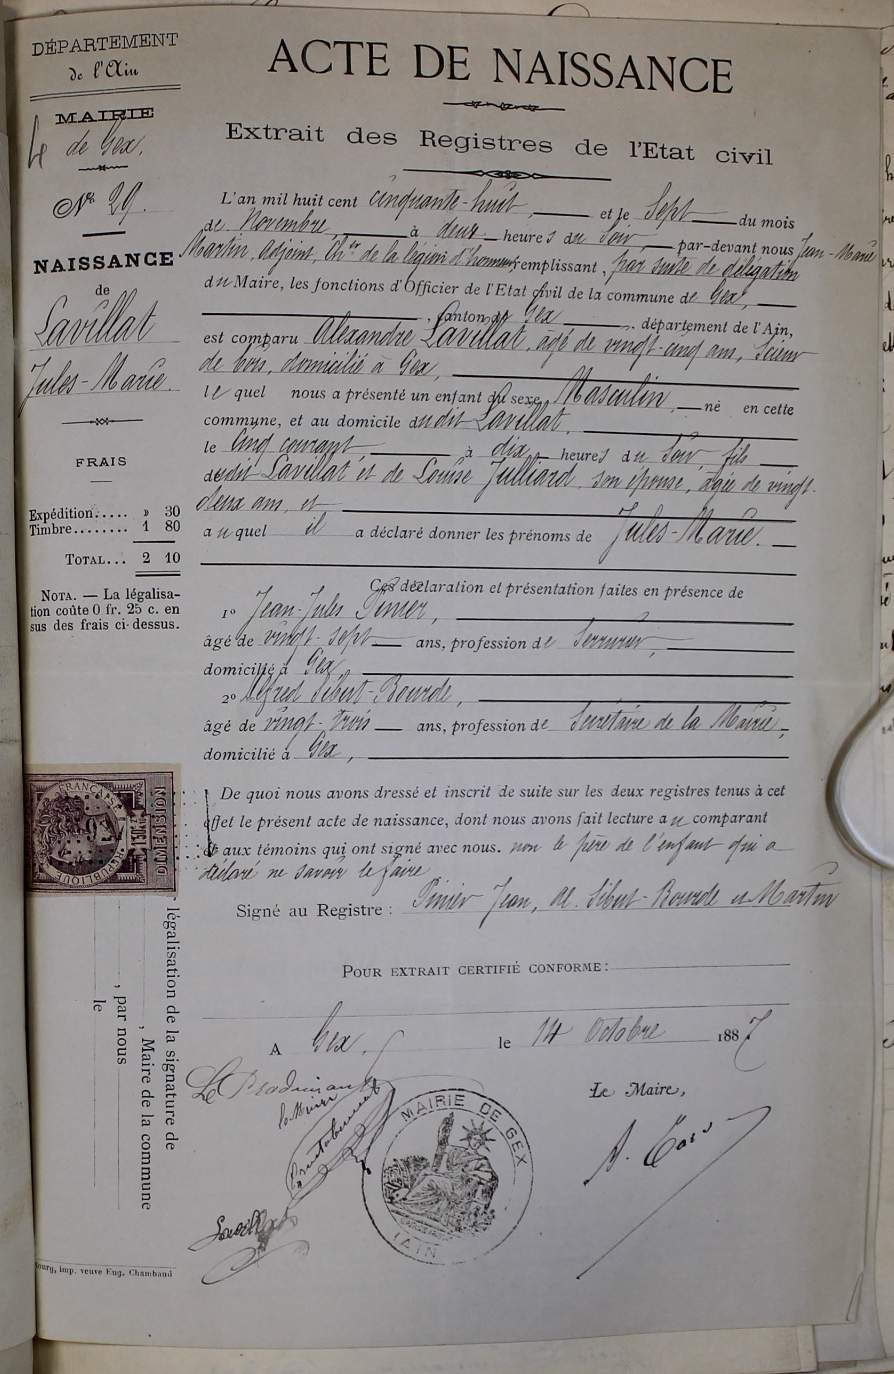 DÉPARTEMENT
de l'Ain
MAIRIE
de Gex.
No 29.
NAISSANCE
de
Lavillat
Jules-Marie.
FRAIS
Expédition..... » 30
Timbre........ 1 80
TOTAL... 2 10
NOTA. — La légalisa-
tion coûte 0 fr. 25 c. en
sus des frais ci-dessus.
ACTE DE NAISSANCE
Extrait des Registres de l'Etat civil
L'an mil huit cent cinquante-huit, et le Sept du mois
de Novembre, à deux heures du Soir, par-devant nous Jean-Marie
Martin, Adjoint, Cher de la légion d'honneur, remplissant, par suite de délégation
du Maire, les fonctions d'Officier de l'Etat civil de la commune de Gex,
, canton de Gex, département de l'Ain,
est comparu Alexandre Lavillat, âgé de vingt-cinq ans, Scieur
de bois, domicilié à Gex,
lequel nous a présenté un enfant du sexe Masculin, né en cette
commune, et au domicile dudit Lavillat,
le Cinq courant à dix heures du Soir, fils
dudit Lavillat et de Louise Julliard, son épouse, âgée de vingt-
deux ans, et
auquel il a déclaré donner les prénoms de Jules-Marie.
Ces déclaration et présentation faites en présence de
1o Jean-Jules Pinier,
âgé de vingt-sept ans, profession de Serrurier,
domicilié à Gex,
2o Alfred Sibert-Bourde,
âgé de vingt-trois ans, profession de Secrétaire de la Mairie,
domicilié à Gex,
De quoi nous avons dressé et inscrit de suite sur les deux registres tenus à cet
effet le présent acte de naissance, dont nous avons fait lecture au comparant
et aux témoins qui ont signé avec nous. non le père de l'enfant qui a
déclaré ne savoir le faire
Signé au Registre : Pinier Jean, Al. Sibert-Bourde et Martin
POUR EXTRAIT CERTIFIÉ CONFORME :
A Gex, le 14 Octobre 1887
Le Maire,
MAIRIE DE GEX
(AIN)
RÉPUBLIQUE FRANÇAISE
DIMENSION
légalisation de la signature de
, Maire de la commune
, par nous
le
Bourg, imp. veuve Eug. Chambaud